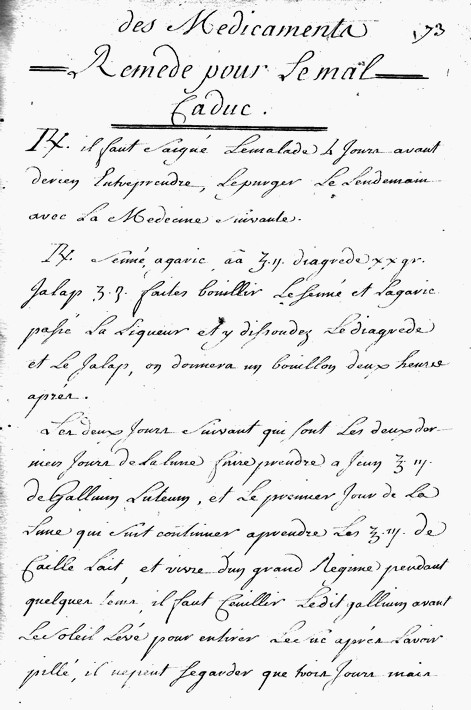 des Medicaments 173
Remede pour Le mal
Caduc.
Rx. il faut saigné Le malade 4 Jours avant
de rien Entreprendre, Le purger Le Lendemain
avec La Medecine suivante.
Rx. senné, agaric āā ʒ.ıȷ. diagrede xx gr.
Jalap ʒ.ʒ. faites bouillir Le senné et Lagaric
passé La Liqueur et y dissoudez Le diagrede
et Le Jalap, on donnera un bouillon deux heures
aprés.
Les deux Jours suivant qui sont Les deux der-
niers Jours de La lune faire prendre a Jeun ʒ ııȷ.
de Gallium Luteum, et Le premier Jour de La
Lune qui suit continuer aprendre Les ʒ.ııȷ. de
Caille Lait, et vivre d'un grand Regime pendant
quelques tems, il faut Ceuillir Ledit gallium avant
Le soleil Levé pour entirer Le suc aprés Lavoir
pillé, il nepeut segarder que trois Jours mais